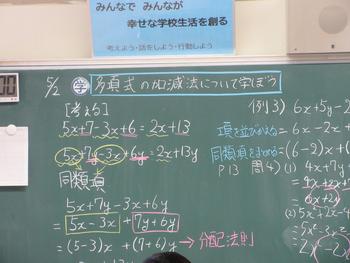 みんなで みんなが
幸せな学校生活を創る
考えよう・話をしよう・行動しよう
5/2 学 多項式の加減法について学ぼう
[考える]
5x+7-3x+6=2x+13
5x+7y-3x+6y=2x+13y
同類項
5x+7y-3x+6y
=5x-3x +7y+6y
=(5-3)x +(7+6)y→分配法則
例3) 6x+5y-2
項を並びかえる =6x-2x+
同類項をまとめる =(6-2)x+(
P13 問4) (1) 4x+7y
(2) 5x²+2x-4